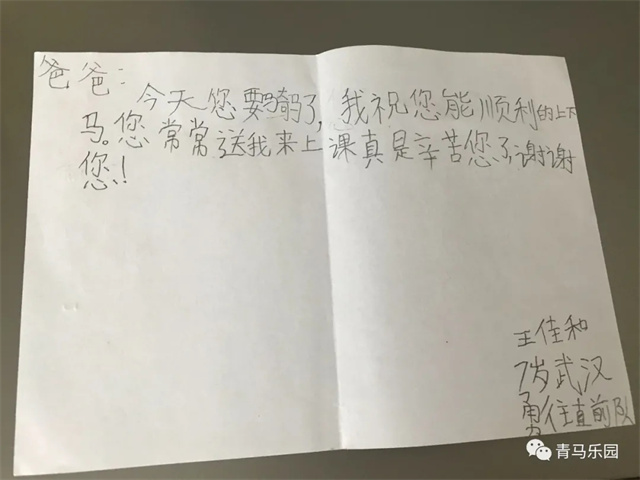 爸爸:
今天您要骑马了,我祝您能顺利的上下
马。您常常送我来上课真是辛苦您了谢谢
您!
王佳和
7岁武汉
勇往直前队
青马乐园